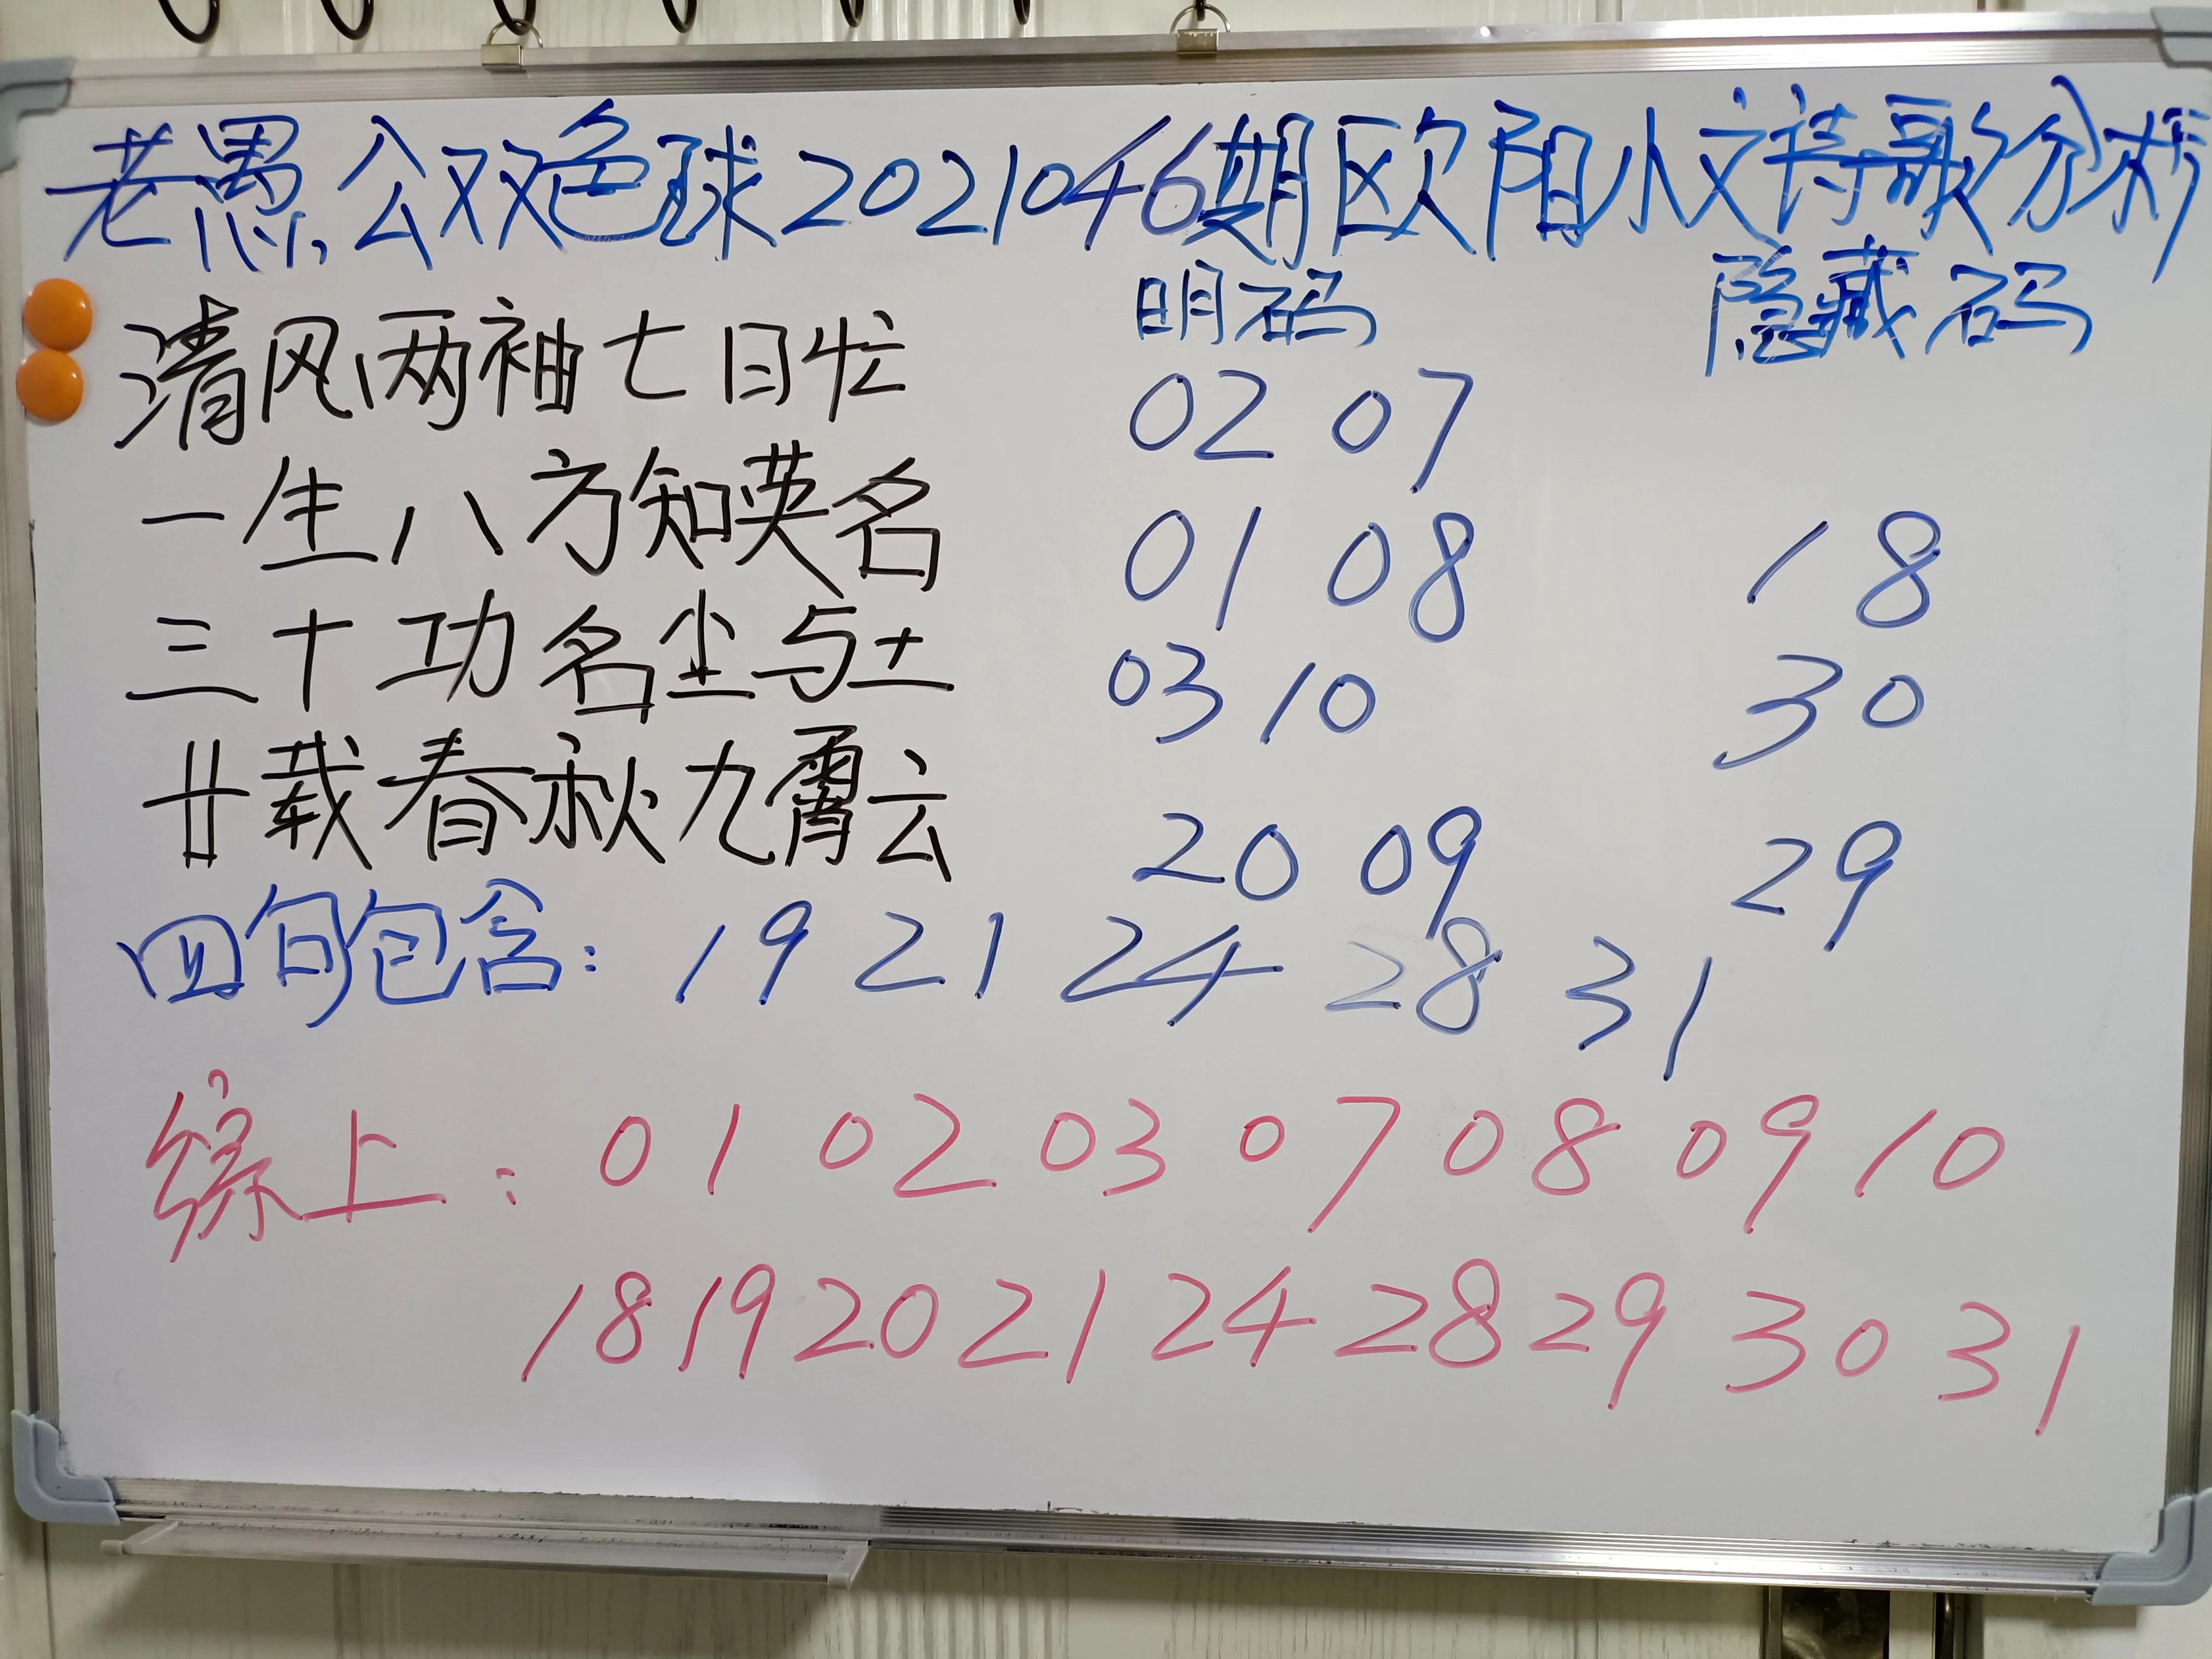 老愚公双色球2021046期欧阳小文诗歌分析
明码 隐藏码
清风两袖七日忙 02 07
一生八方知英名 01 08 18
三十功名尘与土 03 10 30
廿载春秋九霄云 20 09 29
四句包含: 19 21 24 28 31
综上: 01 02 03 07 08 09 10
18 19 20 21 24 28 29 30 31